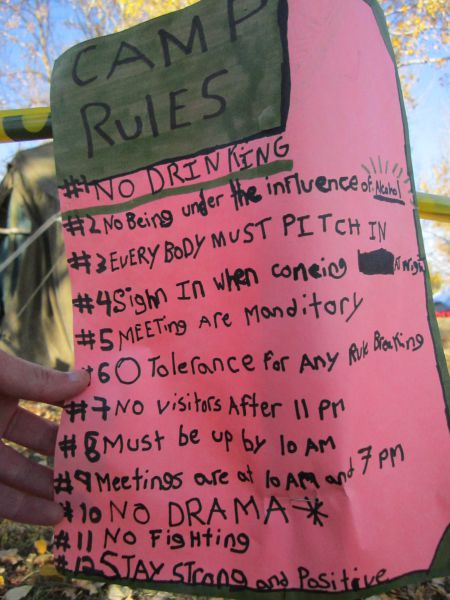 CAMP
RULES
#1 NO DRINKING
#2 No Being under the influence of Alcohol
#3 EVERYBODY MUST PITCH IN
#4 Sighn In when comeing At Night
#5 MEETing Are Manditory
#6 O Tolerance For Any Rule Breaking
#7 No visitors After 11 pm
#8 Must be up by 10 AM
#9 Meetings are at 10 AM and 7 pm
#10 NO DRAMA *
#11 No Fighting
#12 STAY STRONG and Positive